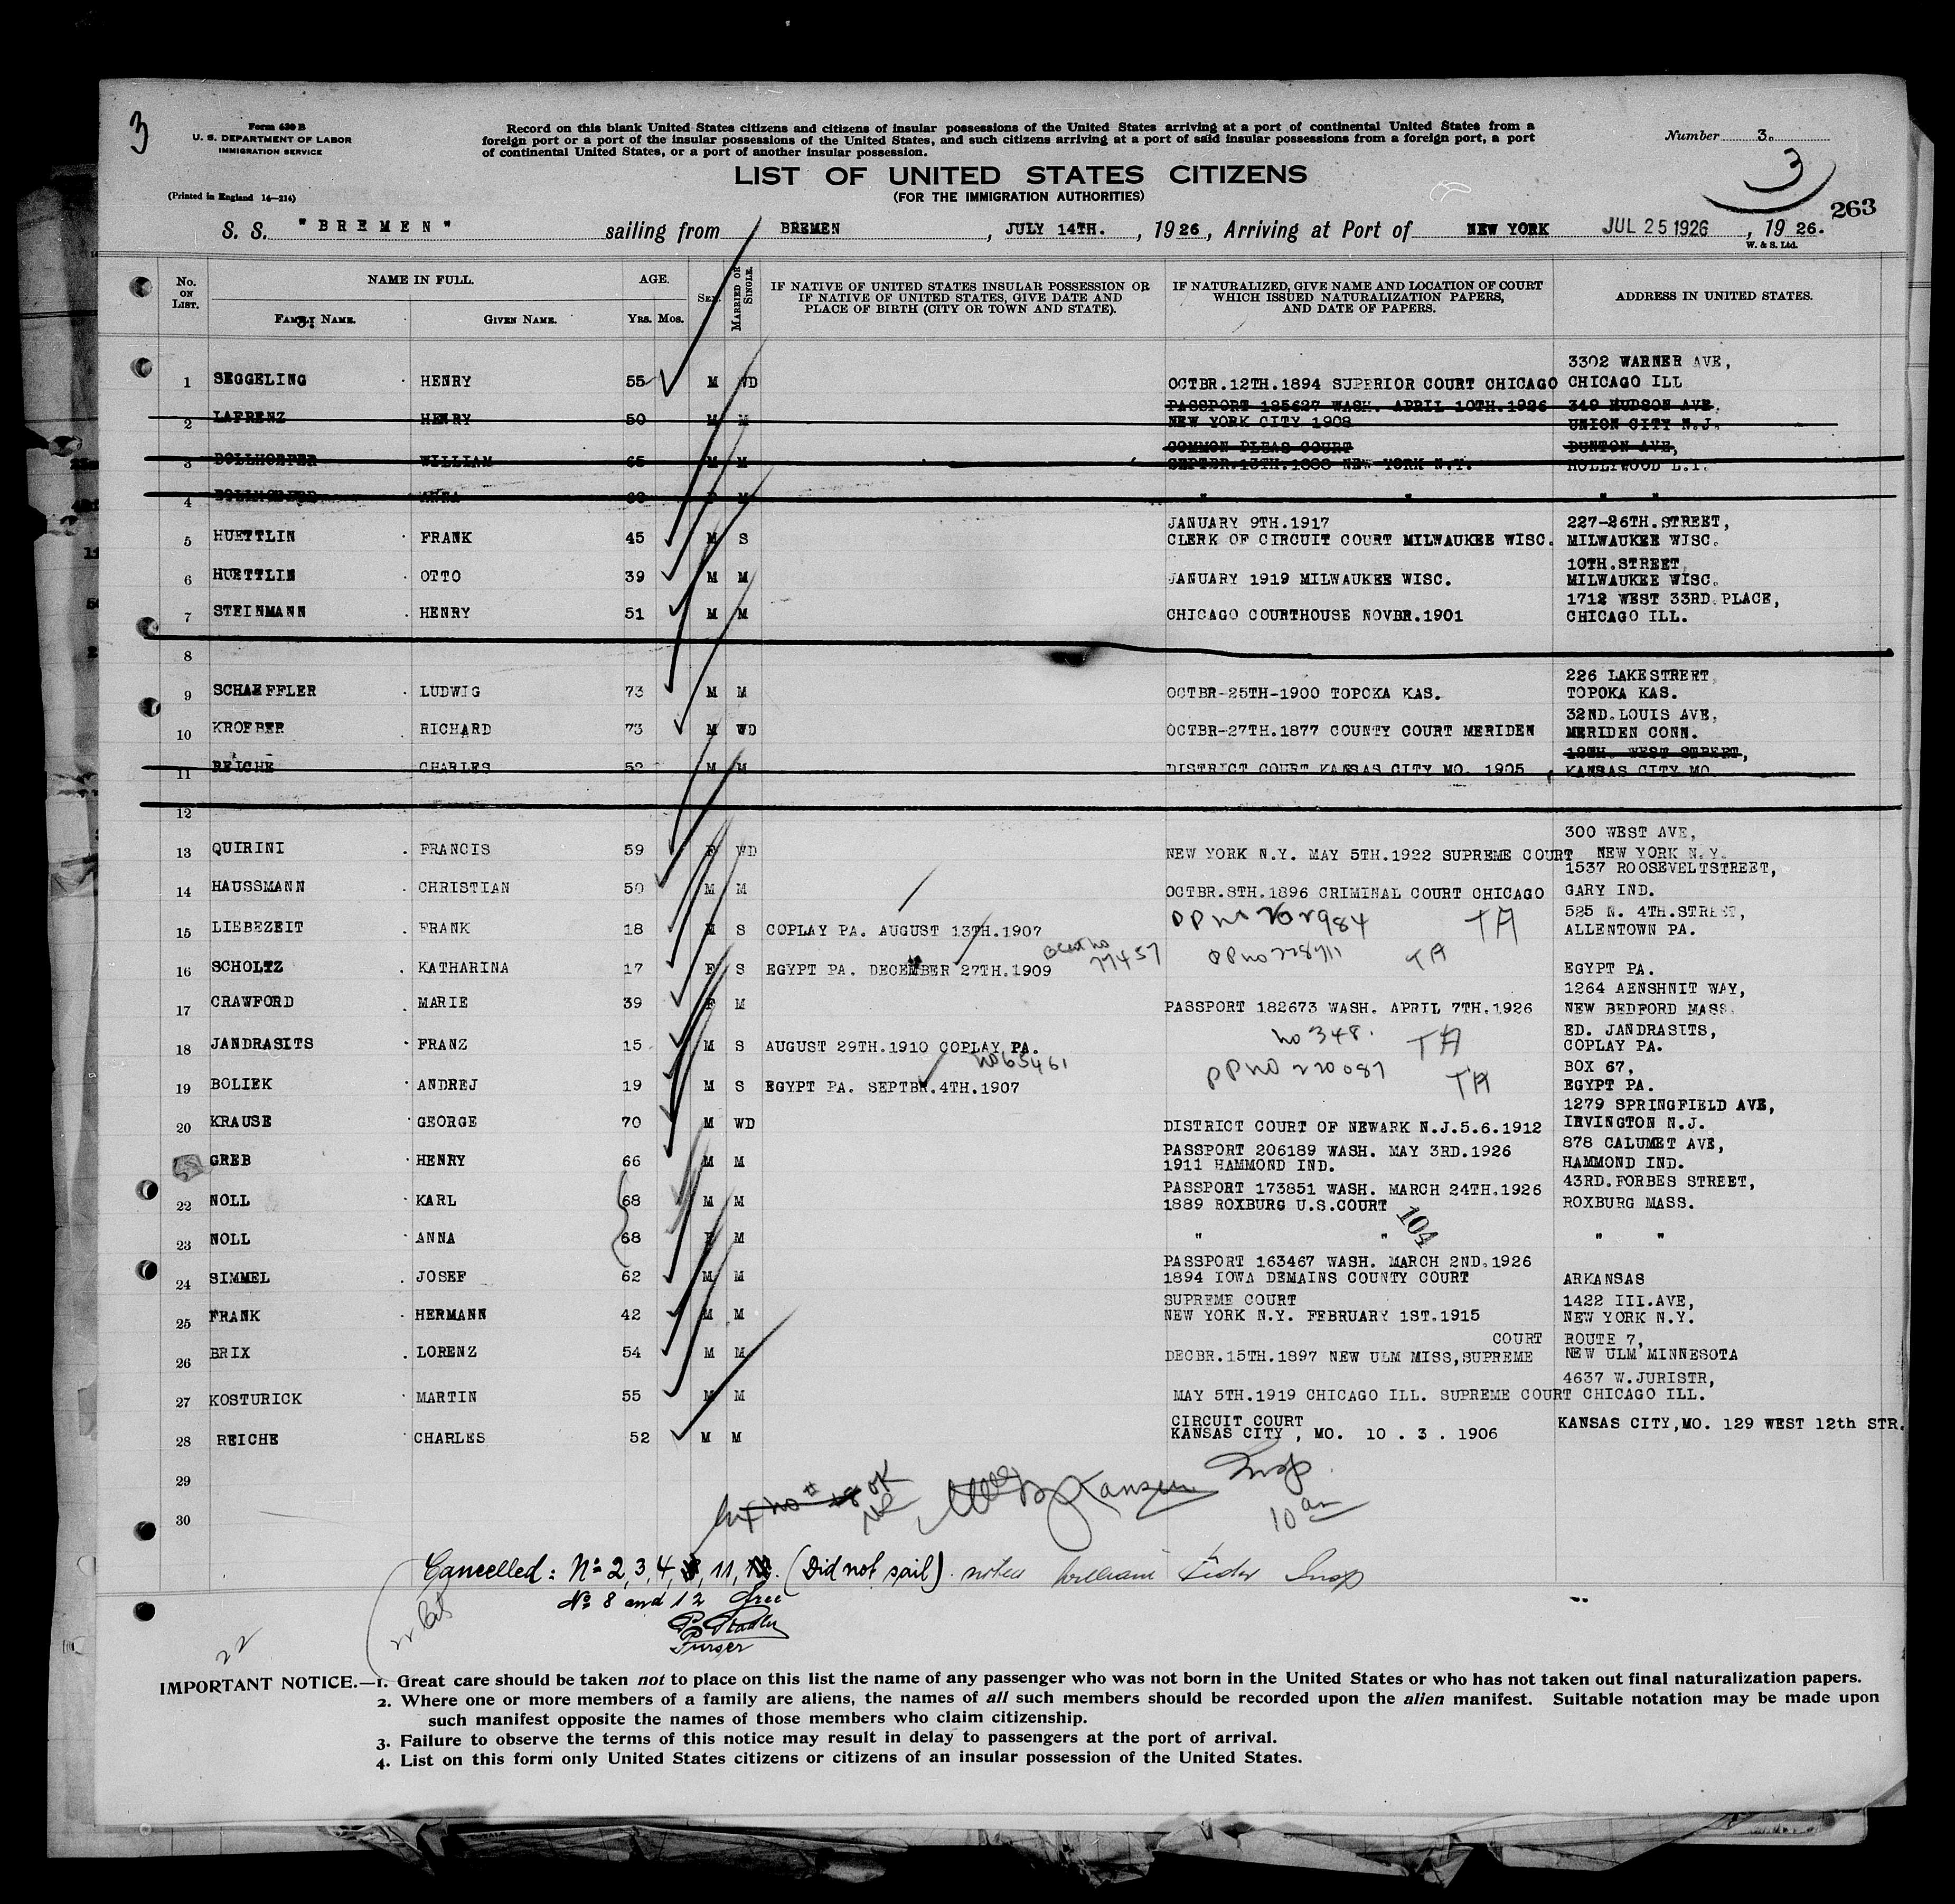 3
Form 630 B
U. S. DEPARTMENT OF LABOR
IMMIGRATION SERVICE
(Printed in England 14—214)
Record on this blank United States citizens and citizens of insular possessions of the United States arriving at a port of continental United States from a
foreign port or a port of the insular possessions of the United States, and such citizens arriving at a port of said insular possessions from a foreign port, a port
of continental United States, or a port of another insular possession.
Number 3.
3
LIST OF UNITED STATES CITIZENS
(FOR THE IMMIGRATION AUTHORITIES)
263
S. S. "BREMEN" sailing from BREMEN, JULY 14TH., 1926, Arriving at Port of NEW YORK JUL 25 1926, 1926.
W. & S. Ltd.
No. ON LIST. NAME IN FULL. AGE. SEX. MARRIED OR SINGLE. IF NATIVE OF UNITED STATES INSULAR POSSESSION OR IF NATIVE OF UNITED STATES, GIVE DATE AND PLACE OF BIRTH (CITY OR TOWN AND STATE). IF NATURALIZED, GIVE NAME AND LOCATION OF COURT WHICH ISSUED NATURALIZATION PAPERS, AND DATE OF PAPERS. ADDRESS IN UNITED STATES.
FAMILY NAME. GIVEN NAME. YRS. MOS.
3.
3302 WARNER AVE,
1 SEGGELING HENRY 55 M WD OCTBR.12TH.1894 SUPERIOR COURT CHICAGO CHICAGO ILL
PASSPORT 185627 WASH. APRIL 10TH.1926 349 HUDSON AVE,
2 LAFRENZ HENRY 50 M M NEW YORK CITY 1908 UNION CITY N.J.
COMMON PLEAS COURT DUNTON AVE,
3 WILLIAM 65 M M SEPTBR.13TH.1888 NEW YORK N.Y. HOLLYWOOD L.I.
4 ANNA M " " " "
JANUARY 9TH.1917 227-26TH.STREET,
5 HUETTLIN FRANK 45 M S CLERK OF CIRCUIT COURT MILWAUKEE WISC. MILWAUKEE WISC.
10TH.STREET
6 HUETTLIN OTTO 39 M M JANUARY 1919 MILWAUKEE WISC. MILWAUKEE WISC.
1712 WEST 33RD.PLACE,
7 STEINMANN HENRY 51 M M CHICAGO COURTHOUSE NOVBR.1901 CHICAGO ILL.
8
226 LAKESTRERT
9 SCHAEFFLER LUDWIG 73 M M OCTBR-25TH-1900 TOPOKA KAS. TOPOKA KAS.
32ND.LOUIS AVE,
10 KROEBER RICHARD 73 M WD OCTBR-27TH.1877 COUNTY COURT MERIDEN MERIDEN CONN.
12TH. WEST STREET,
11 REICHE CHARLES 52 M M DISTRICT COURT KANSAS CITY MO. 1905 KANSAS CITY MO.
12
300 WEST AVE,
13 QUIRINI FRANCIS 59 F WD NEW YORK N.Y. MAY 5TH.1922 SUPREME COURT NEW YORK N.Y.
1537 ROOSEVELTSTREET,
14 HAUSSMANN CHRISTIAN 50 M M OCTBR.8TH.1896 CRIMINAL COURT CHICAGO GARY IND.
TA 525 N. 4TH.STREET,
15 LIEBEZEIT FRANK 18 M S COPLAY PA. AUGUST 13TH.1907 ALLENTOWN PA.
77457 PP no 228711 TA
16 SCHOLTZ KATHARINA 17 F S EGYPT PA. DECEMBER 27TH.1909 EGYPT PA.
1264 AENSHNIT WAY,
17 CRAWFORD MARIE 39 F M PASSPORT 182673 WASH. APRIL 7TH.1926 NEW BEDFORD MASS.
no 348. TA ED. JANDRASITS,
18 JANDRASITS FRANZ 15 M S AUGUST 29TH.1910 COPLAY PA. COPLAY PA.
no 65461 PP no 220087 TA BOX 67,
19 BOLIEK ANDREJ 19 M S EGYPT PA. SEPTBR.4TH.1907 EGYPT PA.
1279 SPRINGFIELD AVE,
20 KRAUSE GEORGE 70 M WD DISTRICT COURT OF NEWARK N.J.5.6.1912 IRVINGTON N.J.
PASSPORT 206189 WASH. MAY 3RD.1926 878 CALUMET AVE,
GREB HENRY 66 M M 1911 HAMMOND IND. HAMMOND IND.
PASSPORT 173851 WASH. MARCH 24TH.1926 43RD.FORBES STREET,
22 NOLL KARL 68 M M 1889 ROXBURG U.S.COURT ROXBURG MASS.
104
23 NOLL ANNA 68 F M " " " "
PASSPORT 163467 WASH. MARCH 2ND.1926
24 SIMMEL JOSEF 62 M M 1894 IOWA DEMAINS COUNTY COURT ARKANSAS
SUPREME COURT 1422 III.AVE,
25 FRANK HERMANN 42 M M NEW YORK N.Y. FEBRUARY 1ST.1915 NEW YORK N.Y.
COURT ROUTE 7,
26 BRIX LORENZ 54 M M DECBR.15TH.1897 NEW ULM MISS,SUPREME NEW ULM MINNESOTA
4637 W.JURISTR,
27 KOSTURICK MARTIN 55 M M MAY 5TH.1919 CHICAGO ILL. SUPREME COURT CHICAGO ILL.
CIRCUIT COURT KANSAS CITY,MO. 129 WEST 12th STR.
28 REICHE CHARLES 52 M M KANSAS CITY , MO. 10 . 3 . 1906
29
Insp.
30 OK 10 am
Cancelled: No 2, 3, 4, 8, 11, 12. (Did not sail) noted William Insp
No 8 and 12 free
Purser
22
IMPORTANT NOTICE.—1. Great care should be taken not to place on this list the name of any passenger who was not born in the United States or who has not taken out final naturalization papers.
2. Where one or more members of a family are aliens, the names of all such members should be recorded upon the alien manifest. Suitable notation may be made upon
such manifest opposite the names of those members who claim citizenship.
3. Failure to observe the terms of this notice may result in delay to passengers at the port of arrival.
4. List on this form only United States citizens or citizens of an insular possession of the United States.